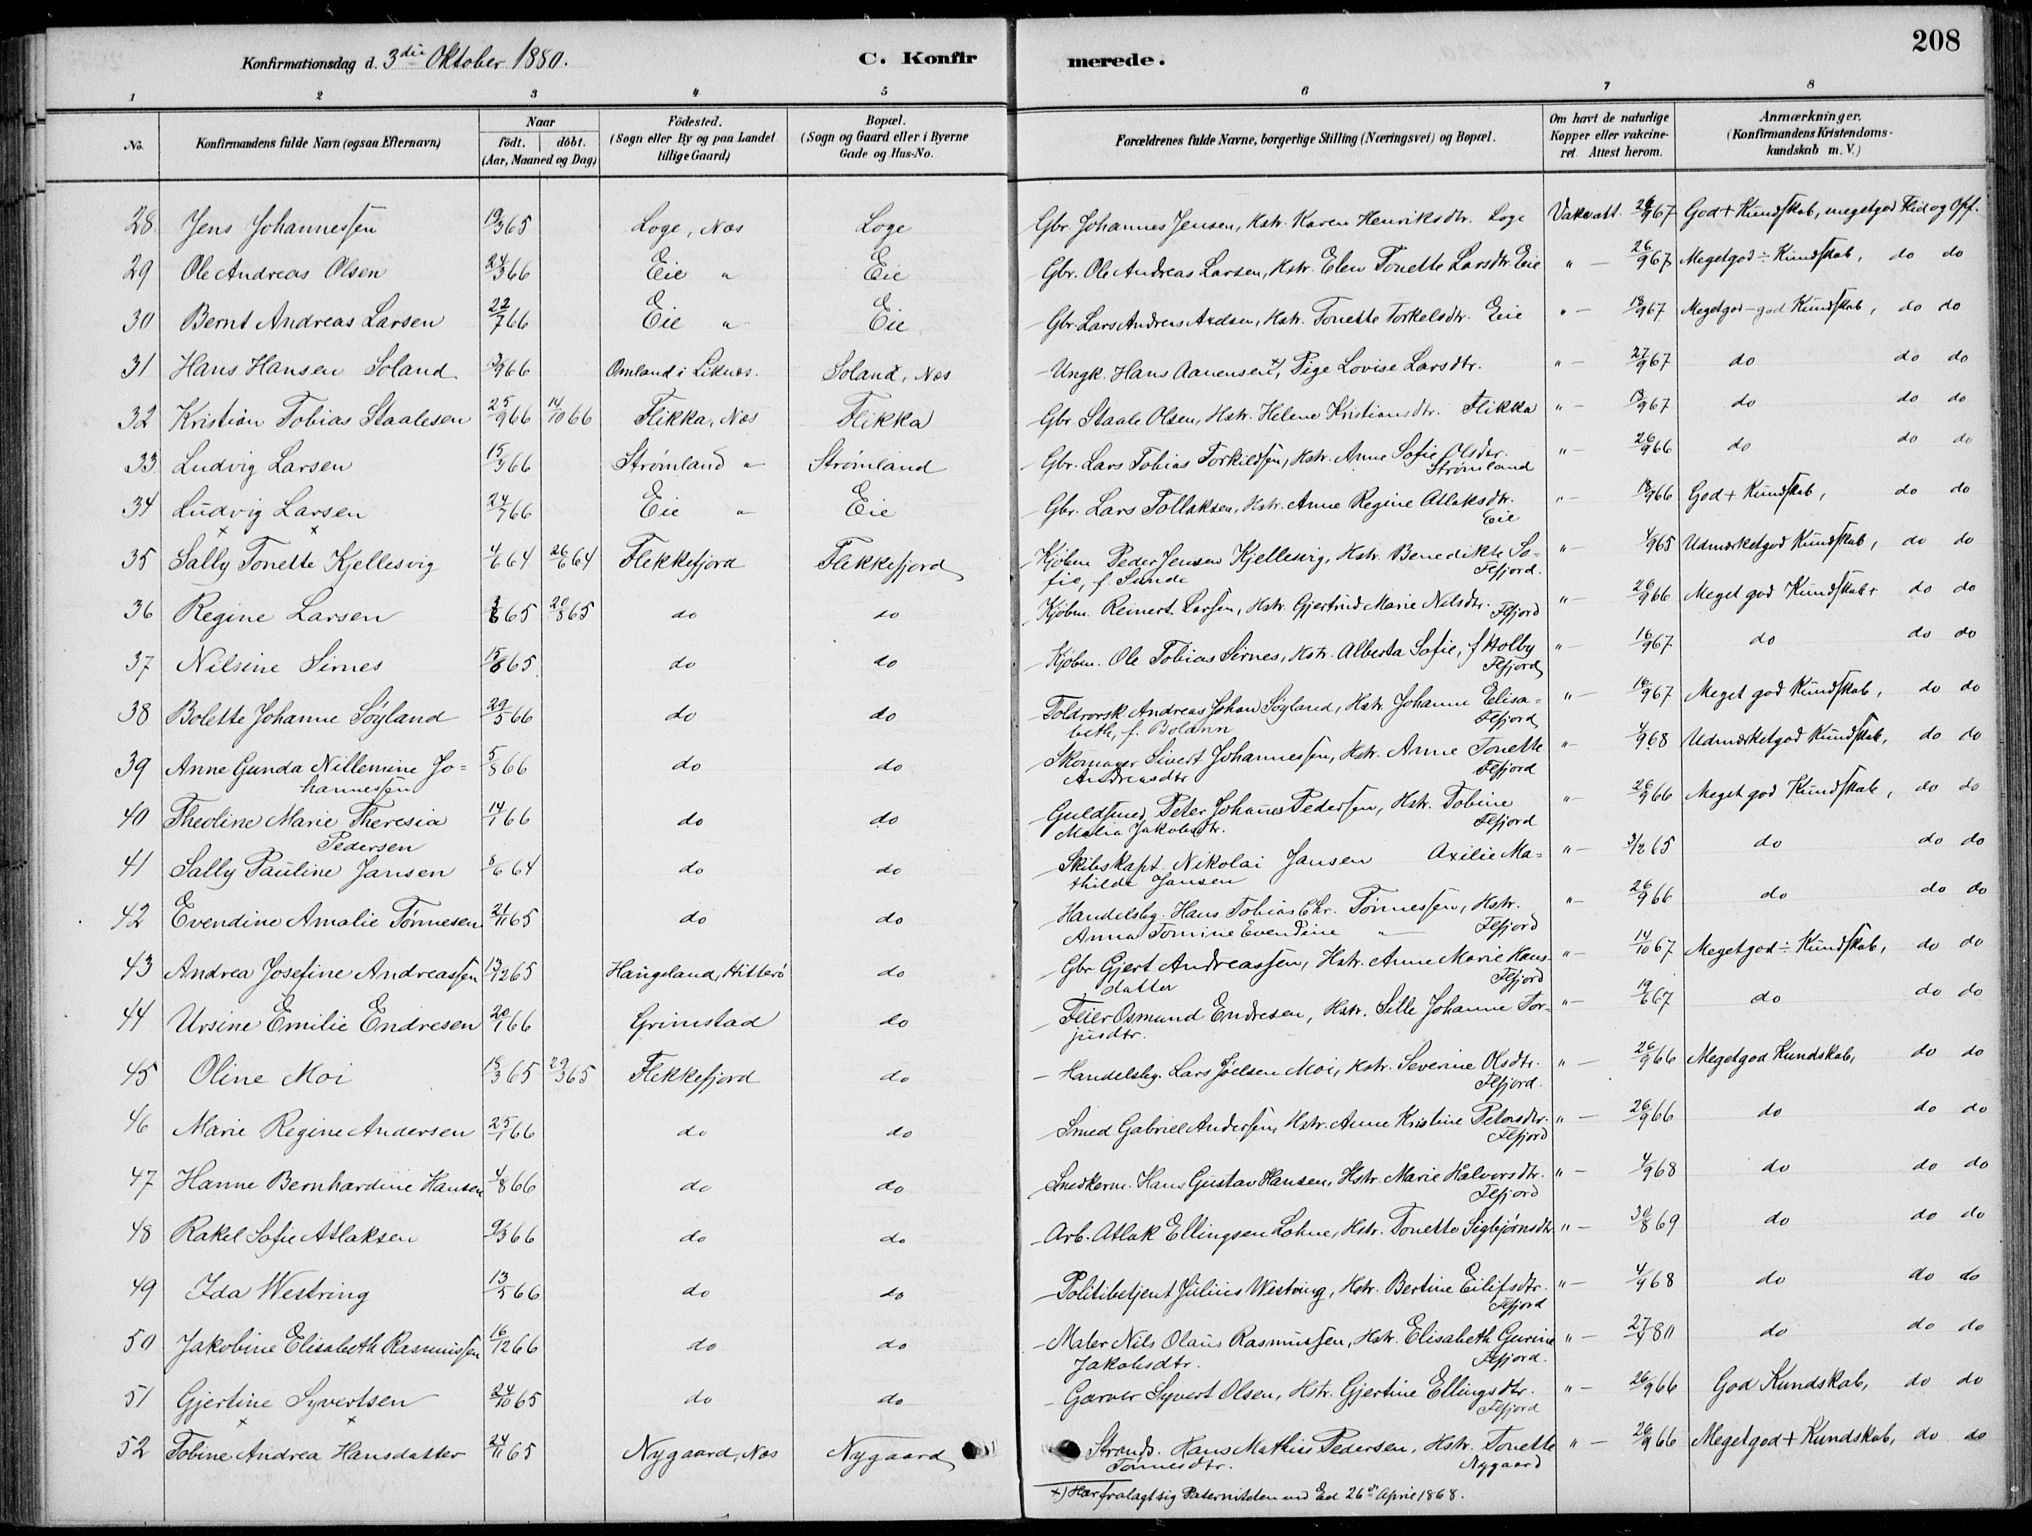 208
Konfirmationsdag d. 3die Oktober 1880. C. Konfirmerede.
1 2 3 4 5 6 7 8
No. Konfirmandens fulde Navn (ogsaa Efternavn) Naar födt. döbt. (Aar, Maaned og Dag) Födested. (Sogn eller By og paa Landet tillige Gaard) Bopæl. (Sogn og Gaard eller i Byerne Gade og Hus-No. Forældrenes fulde Navne, borgerlige Stilling (Næringsvei) og Bopæl. Om havt de naturlige Kopper eller vakcineret. Attest herom. Anmærkninger. (Konfirmandens Kristendomskundskab m. V.)
28 Jens Johannessen 19/3 65 Loge, Næs Loge Gbr. Johannes Jensen, Hstr. Karen Henriksdtr. Loge Vakc att. 26/9 67 God+ Kundskab, megetgod Flid og Opf.
29 Ole Andreas Olsen 24/3 66 Eie " Eie Gbr. Ole Andreas Larsen, Hstr. Elen Tonette Larsdtr. Eie " — 26/9 67 Megetgod ÷ Kundskab, do do
30 Bernt Andreas Larsen 22/7 66 Eie " Eie Gbr. Lars Andreas Axelsen, Hstr. Tonette Torkelsdtr. Eie " — 19/9 67 Megetgod - god Kundskab, do do
31 Hans Hansen Soland 3/9 66 Omland i Liknes. Soland, Næs Ungk. Hans Aanensen x), Pige Lovise Larsdtr. " — 27/9 67 do do do
32 Kristian Tobias Staalesen 25/9 66 14/10 66 Flikka, Næs Flikka Gbr. Staale Olsen, Hstr. Helene Kristiansdtr. Flikka " — 19/9 67 do do do
33 Ludvig Larsen 15/3 66 Strømland " Strømland Gbr. Lars Tobias Torkildsen, Hstr. Anne Sofie Olsdtr. " — 26/9 66 do do do
Strømland
34 Ludvig Larsen 24/7 66 Eie " Eie Gbr. Lars Tollaksen, Hstr. Anne Regine Atlaksdtr. " — 19/9 66 God + Kundskab, do do
x x Eie
35 Sally Tonette Kjellesvig 4/6 64 26/6 64 Flekkefjord Flekkefjord Kjøbm. Peder Jensen Kjellesvig, Hstr. Benedikte So- " — 4/9 65 Udmærketgod Kundskab, do do
fie, f. Sunde Flfjord.
36 Regine Larsen 65 20/8 65 do do Kjøbm. Reinert Larsen, Hstr. Gjertrud Marie Nilsdtr. " — 26/9 66 Meget god Kundskab + do do
Flfjord
37 Nilsine Sirnes 65 do do Kjøbm. Ole Tobias Sirnes, Hstr. Alberta Sofie, f Holby " — 16/9 67 do do do
Flfjord
38 Bolette Johanne Søyland 29/5 66 do do Toldrorsk. Andreas Johan Søyland, Hstr. Johanne Elisa- " — 19/9 67 Meget god Kundskab, do do
beth, f. Bolann Flfjord
39 Anne Gunda Nillemine Jo- 5/8 66 do do Skomager Sivert Johannessen, Hstr. Anne Tonette " — 4/9 68 Udmærketgod Kundskab, do do
hannessen Andreasdtr. Flfjord
40 Theoline Marie Theresia 14/1 66 do do Guldsmed Peter Johannes Pedersen, Hstr. Tobine " — 26/9 66 Meget god Kundskab, do do
Pedersen Malia Jakobsdtr. Flfjord
41 Sally Pauline Jansen 8/6 64 do do Skibskapt. Nikolai Jansen Axilie Ma- " — 3/12 65 do do do
thilde Jansen
42 Evendine Amalie Tønnesen 21/11 65 do do Handelsbg. Hans Tobias Chr. Tønnessen, Hstr. " — 26/9 66 do do do
Anna Tomine Evendine " Flfjord
43 Andrea Josefine Andreassen 13/12 65 Haugeland, Hitterö do Gbr. Gjert Andreassen, Hstr. Anne Marie Hans- " — 14/10 67 Megetgod ÷ Kundskab, do do
datter Flfjord
44 Ursine Emilie Endresen 20/1 66 Grimstad do Feier Osmund Endresen, Hstr. Sille Johanne Tor- " — 19/6 67 do do do
jusdtr.
45 Oline Moi 18/3 65 29/3 65 Flekkefjord do Handelsbg. Lars Joelsen Moi, Hstr. Severine Olsdtr. " — 26/9 66 Megetgod Kundskab, do do
Flfjord.
46 Marie Regine Andersen 25/1 66 do do Smed Gabriel Andersen, Hstr. Anne Kristine Petersdtr. " — 26/9 66 do do do
Flfjord
47 Hanne Bernhardine Hansen 4/8 66 do do Snedkerm. Hans Gustav Hansen, Hstr. Marie Halvorsdtr. " — 4/9 68 do do do
Flfjord
48 Rakel Sofie Atlaksen 9/3 66 do do Arb. Atlak Ellingsen Lohne, Hstr. Tonette Sigbjørnsdtr " — 30/8 69 do do do
49 Ida Westring 13/5 66 do do Politibetjent Julius Westring, Hstr. Bertine Eilifsdtr. " — 4/9 68 do do do
Flfjord
50 Jakobine Elisabeth Rasmussen 16/12 66 do do Maler Nils Olaus Rasmussen, Hstr. Elisabeth Gurine " — 27/4 80 do do do
Jakobsdtr. Flfjord.
51 Gjertine Syvertsen 24/10 65 do do Garver Syvert Olsen, Hstr. Gjertine Ellingsdtr. " — 26/9 66 God Kundskab, do do
x x Flfjord
52 Tobine Andrea Hansdatter 24/11 65 Nygaard, Næs Nygaard Strands. Hans Mathias Pedersen, Hstr. Tonette " — 26/9 66 Megetgod + Kundskab, do do
Tønnesdtr. Nygaard
x) Har fralagt sig Paterniteten ved Ed 26de April 1868.